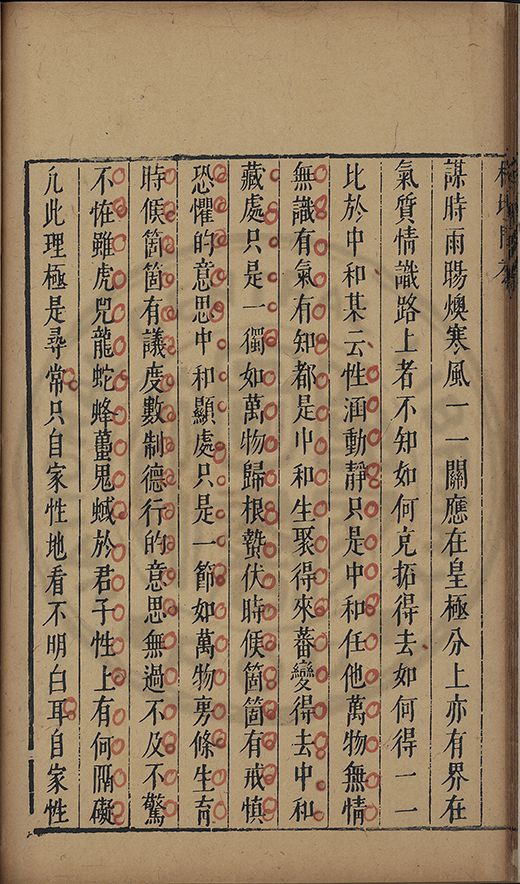 謀時雨暘燠寒風一一關應在皇極分上亦有界在
氣質情識路上者不知如何克拓得去如何得一一
比於中和某云性涵動靜只是中和任他萬物無情
無識有氣有知都是中和生聚得來蕃變得去中和
藏處只是一獨如萬物歸根蟄伏時候箇箇有戒慎
恐懼的意思中和顯處只是一節如萬物旁條生育
時候箇箇有議度數制德行的意思無過不及不驚
不恠雖虎兕龍蛇蜂蠆鬼蜮於君子性上有何隔礙
凡此理極是尋常只自家性地看不明白耳自家性